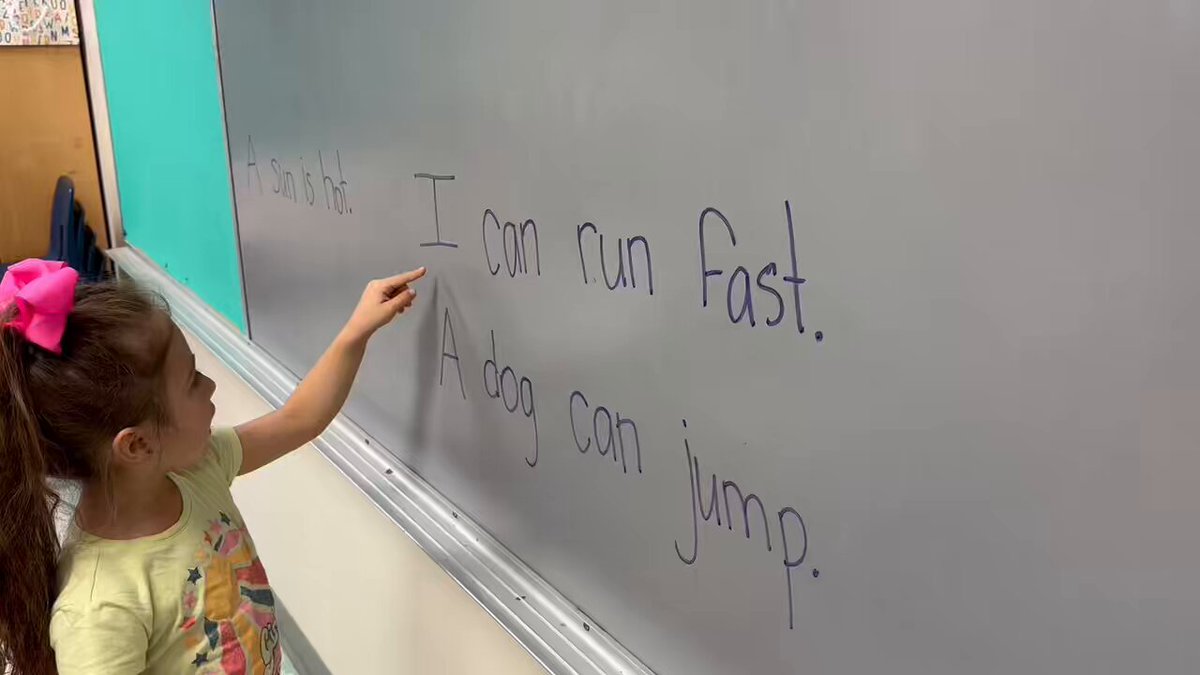 A sun is hot.
I can run fast.
A dog can jump.